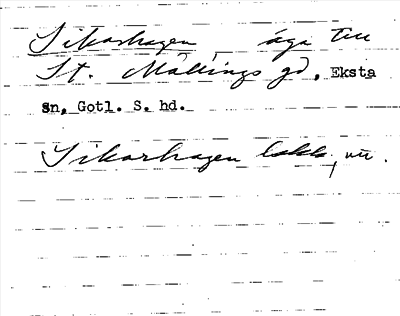 Sikarhagen, äga till
St. Mällings gd, Eksta
sn, Gotl. S. hd.
Sikarhagen